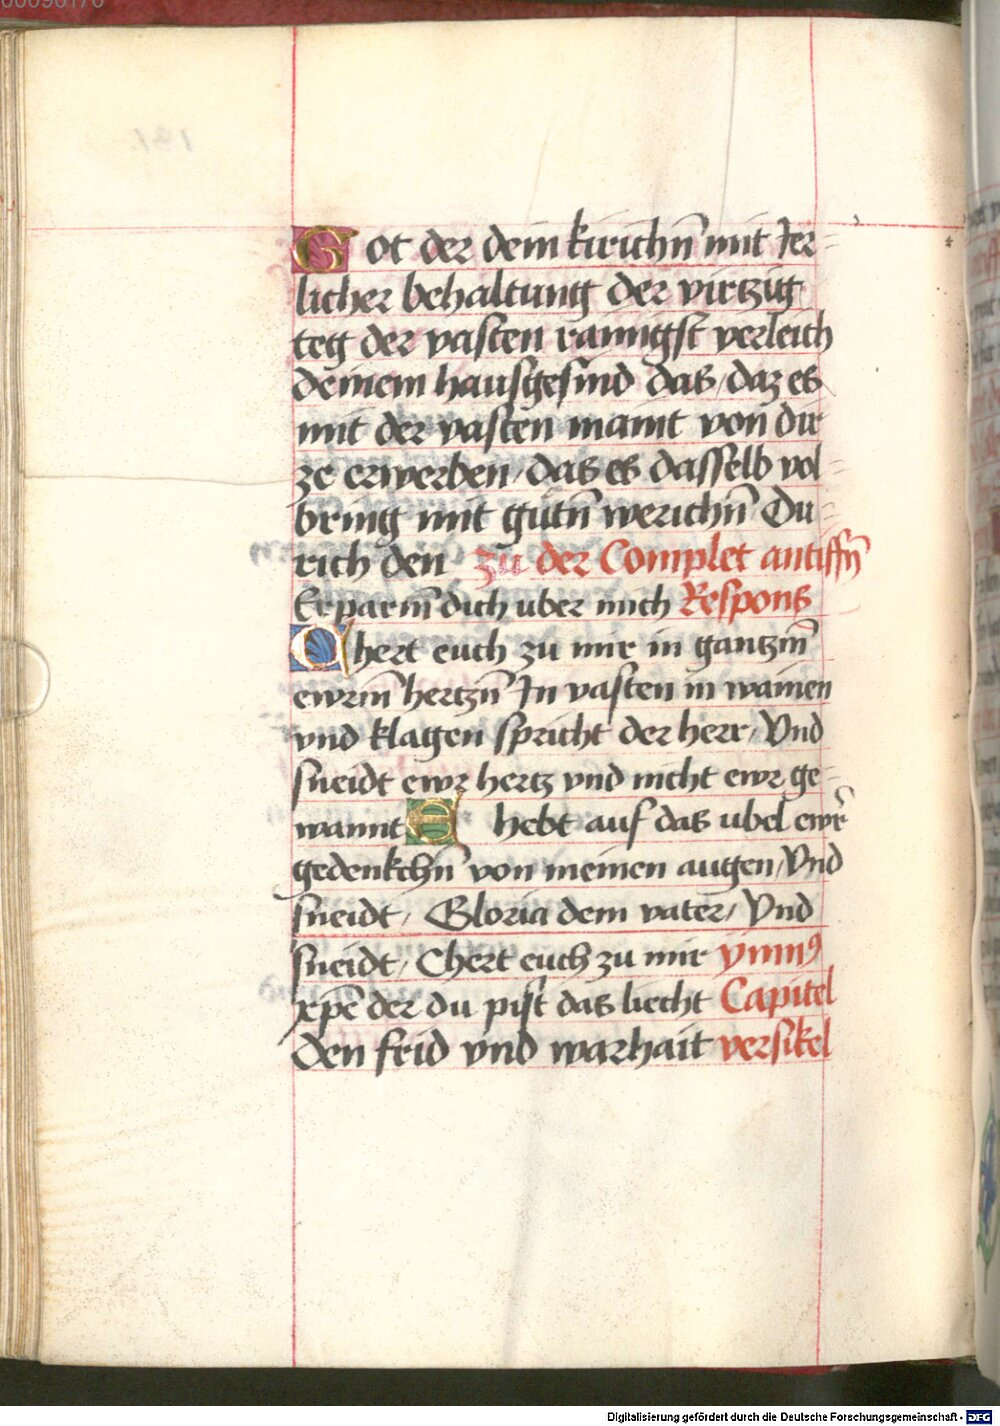 00090170
Got der dein kirichn̄ mit Jer=
licher behaltung der virtzig
teg der vasten rainigst verleich
deinem hausgesind das/ daz es
mit der vasten maint von dir
ze erwerben/ das es dasselb vol=
bring mit gūtn̄ werichn̄ Du=
rich den zu der Complet antiffn̄
Erparm̄ dich uber mich Respons
Chert euch zu mir in gantzm̄
ewrm̄ hertzn̄ In vasten in wainen
vnd klagen spricht der herr/ Vnd
sneidt ewr hertz vnd nicht ewr ge=
wannt Ehebt auf das ubel ewr̄
gedenkchn̄ von meinen augen/ Vnd
sneidt/ Gloria dem vater/ Vnd
sneidt/ Chert euch zu mir ymn9
xp̄e der du pist das liecht Capitel
Den frid vnd warhait versikel
Digitalisierung gefördert durch die Deutsche Forschungsgemeinschaft - DFG